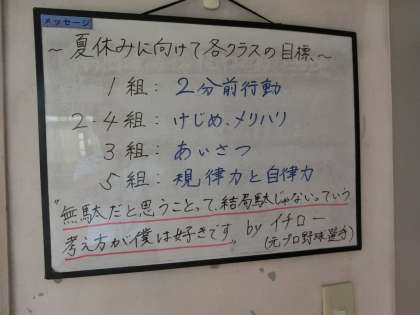 メッセージ
～夏休みに向けて各クラスの目標～
1組：2分前行動
2.4組：けじめ、メリハリ
3組：あいさつ
5組：規律力と自律力
"無駄だと思うことって、結局無駄じゃないっていう
考え方が僕は好きです" by イチロー
(元プロ野球選手)